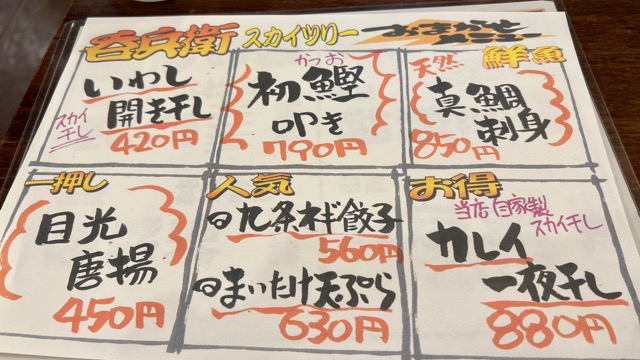 呑兵衛 スカイツリー おまかせメニュー
いわし
開き干し
スカイ干し
420円
かつお
初鰹
叩き
790円
天然 鮮魚
真鯛
刺身
850円
一押し
目光
唐揚
450円
人気
九条ネギ餃子
560円
まいたけ天ぷら
630円
お得
当店自家製
スカイ干し
カレイ
一夜干し
880円